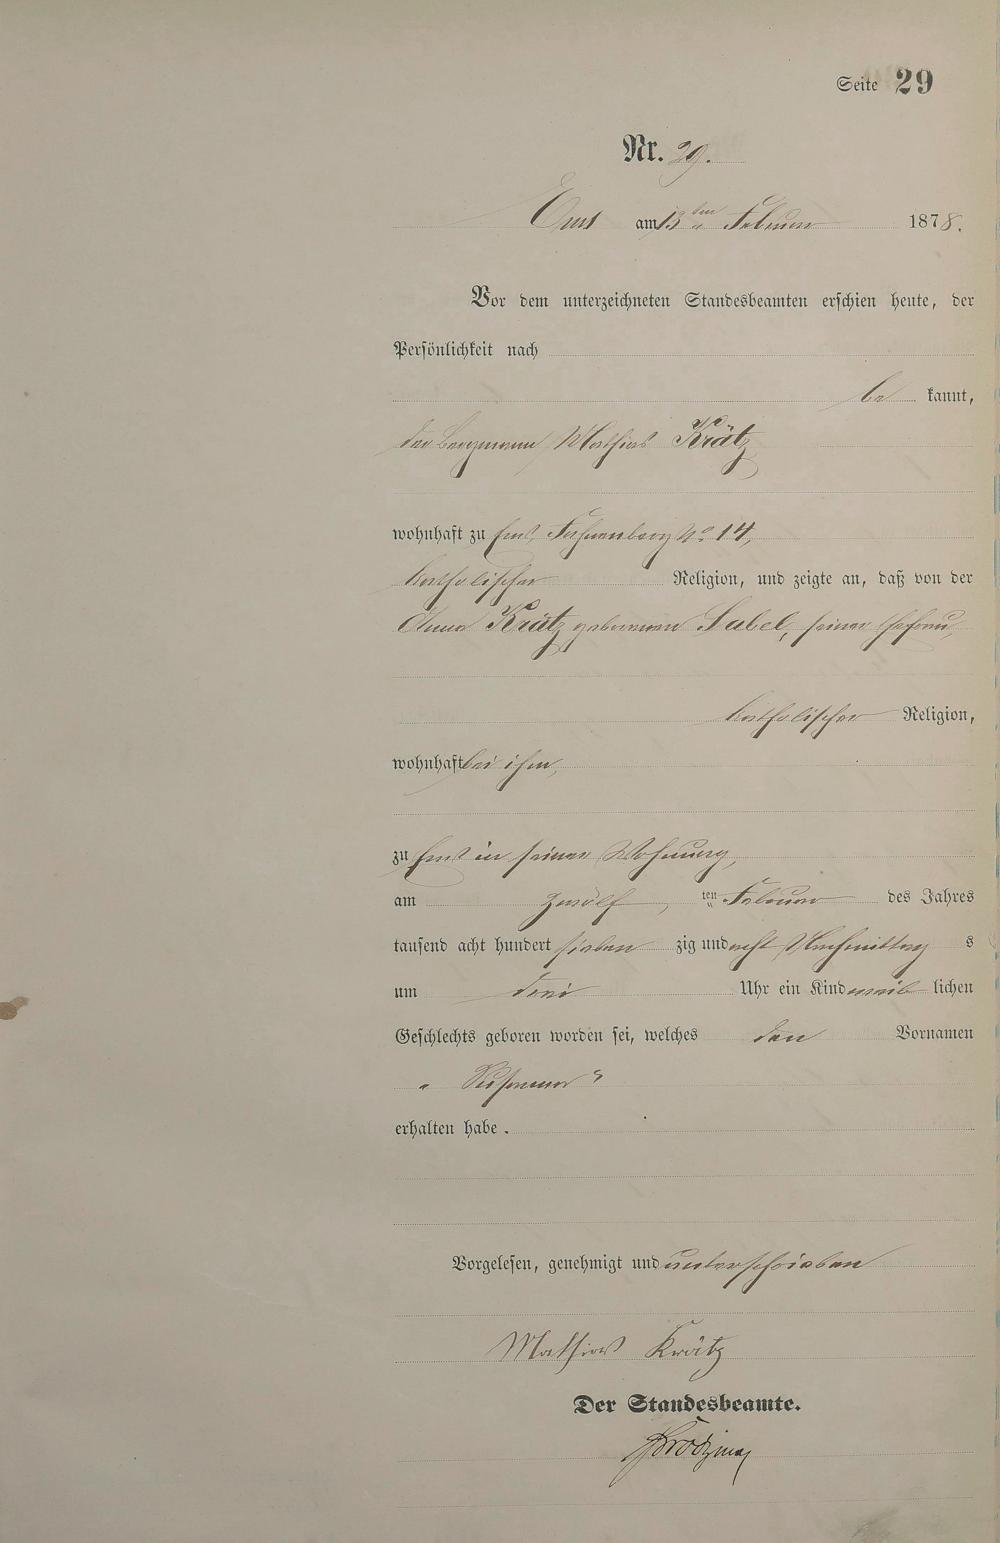 Seite 29
Nr. 29.
Ems am 13ten Februar 1878.
Vor dem unterzeichneten Standesbeamten erschien heute, der
Persönlichkeit nach
be kannt,
der Bergmann Mathias Krätz
wohnhaft zu Ems, No 14,
katholischer Religion, und zeigte an, daß von der
Anna Krätz geborenen Sabel, seiner Ehefrau,
katholischer Religion,
wohnhaft bei ihm,
zu Ems in seiner Wohnung,
am zwölf ten Februar des Jahres
tausend acht hundert sieben zig und acht Nachmittag s
um drei Uhr ein Kind weib lichen
Geschlechts geboren worden sei, welches den Vornamen
„ Susanna "
erhalten habe.
Vorgelesen, genehmigt und unterschrieben
Mathias Krätz
Der Standesbeamte.